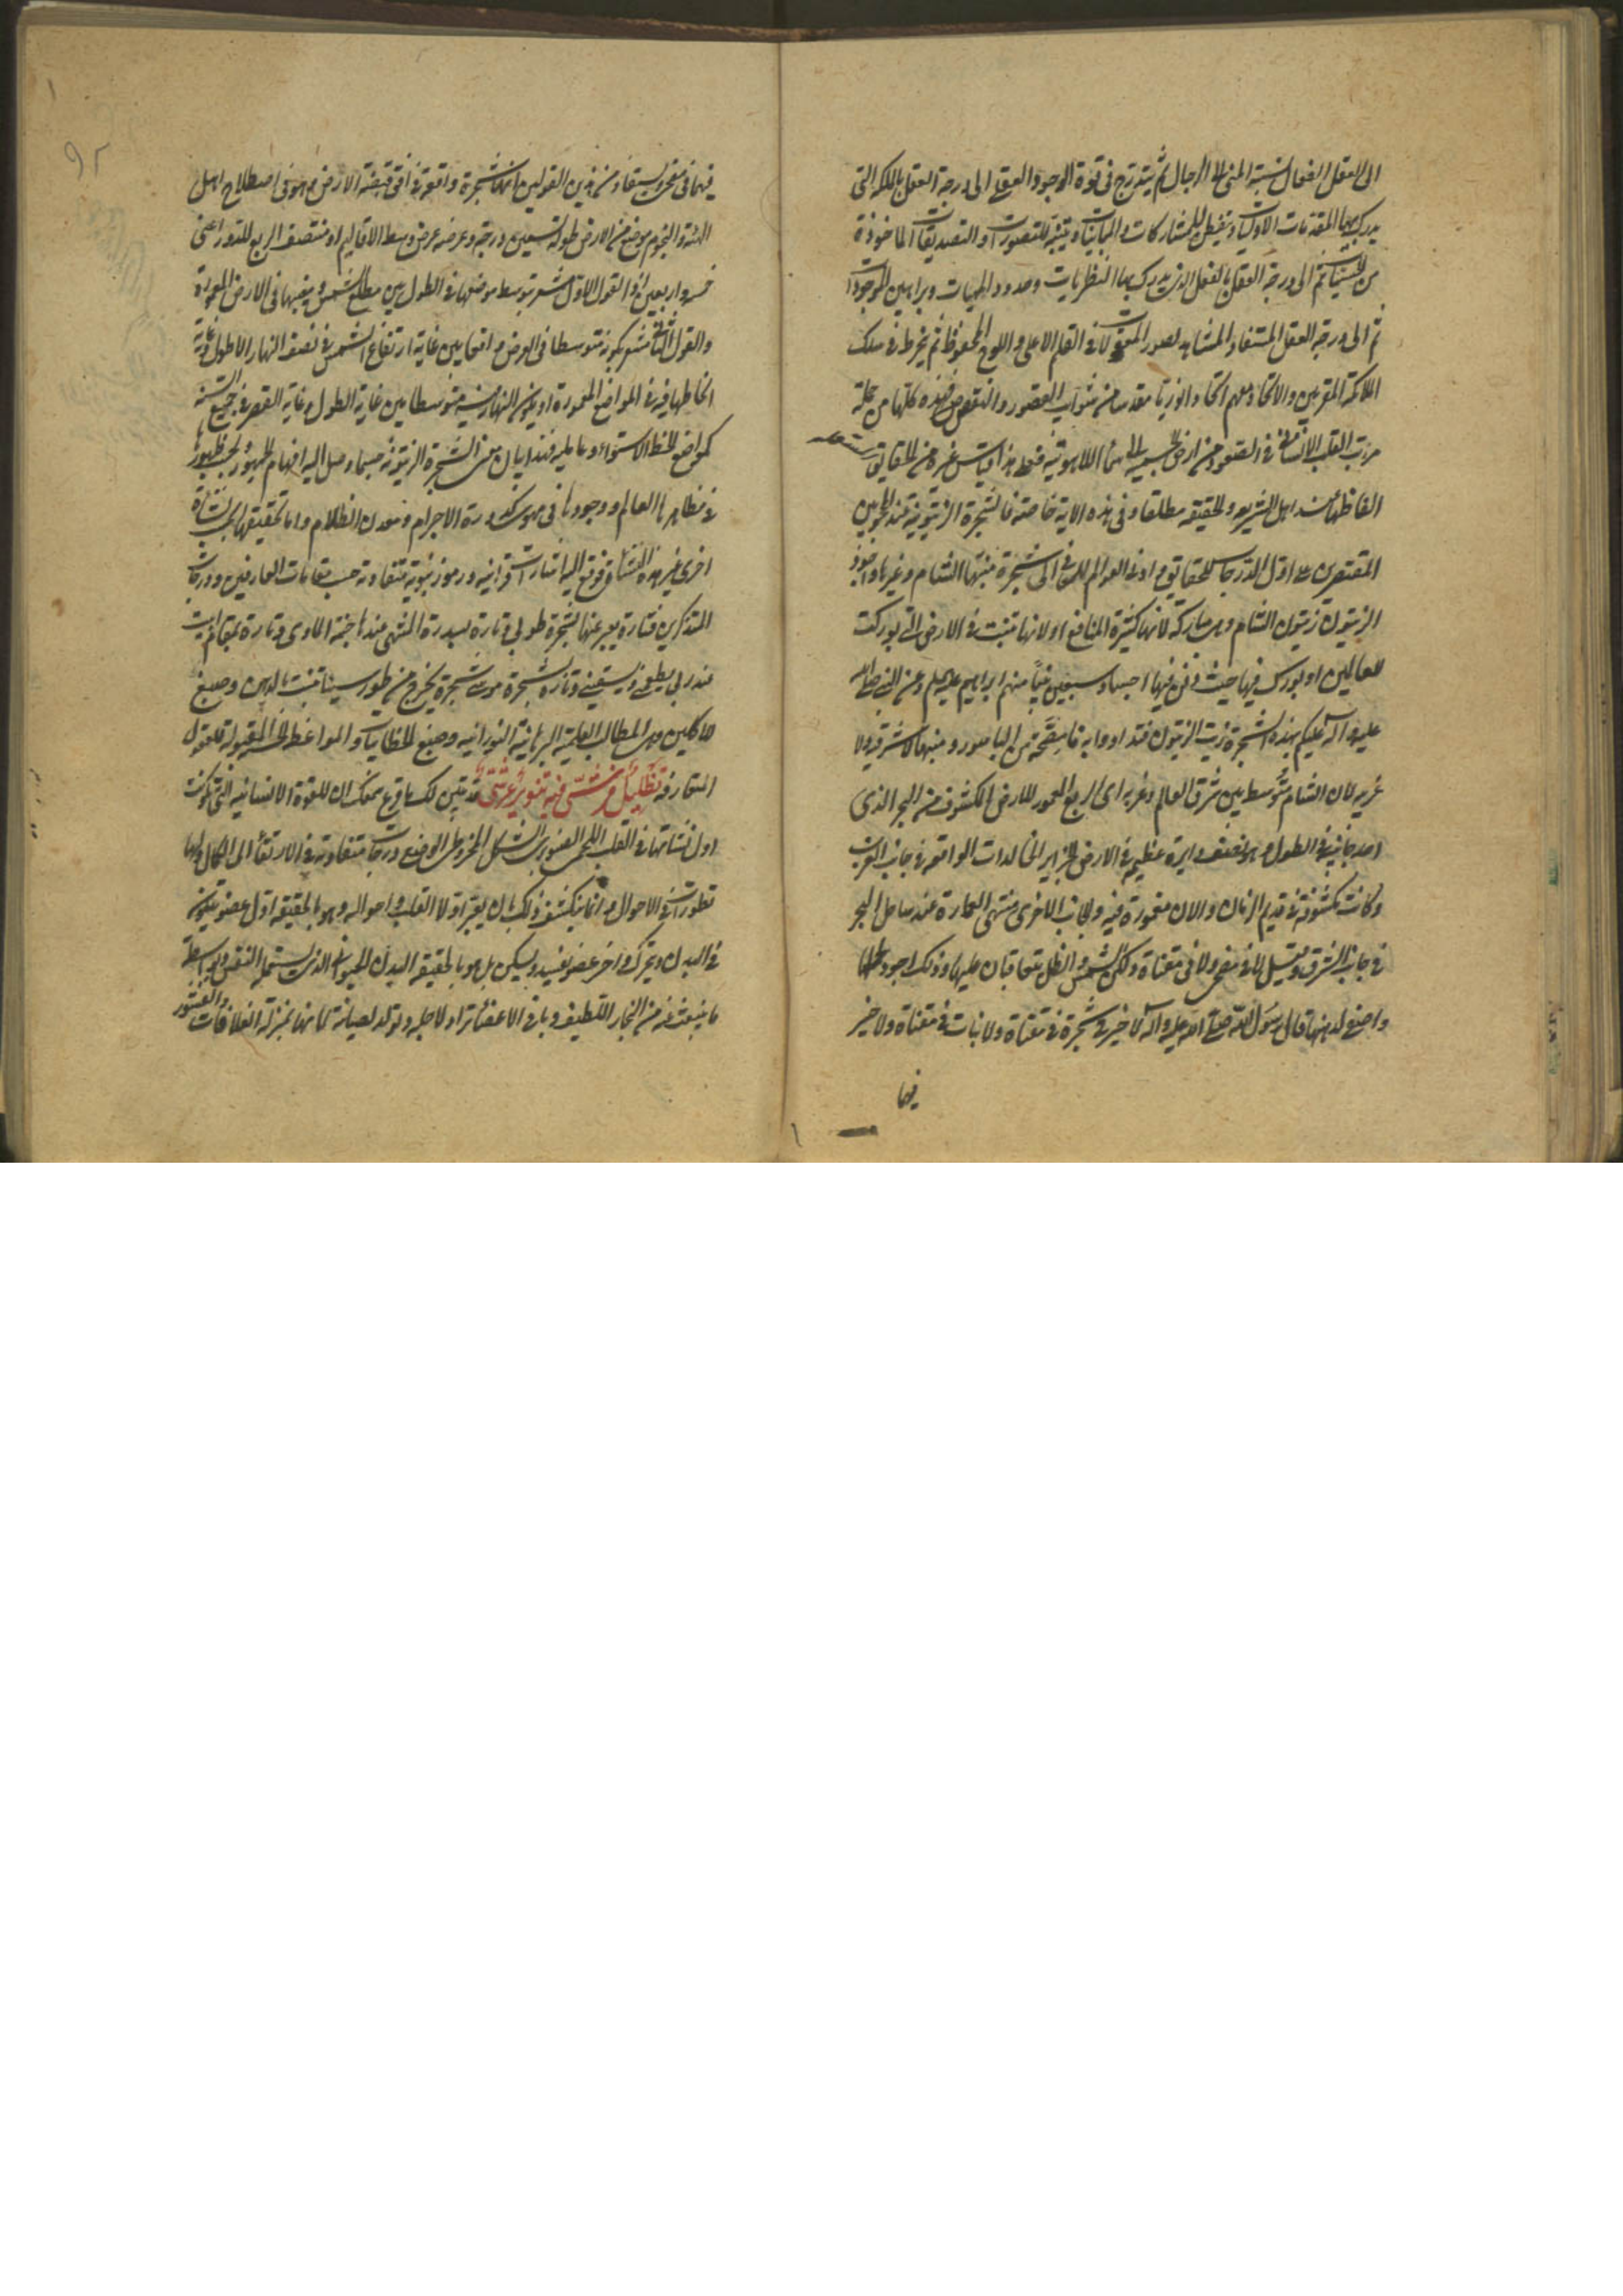 الى العقل الفعال نسبة المنى الى الرجال ثم يتدرج فى قوة الوجود العقلى الى درجة العقل بالملكة التى
يدرك بها المقدمات الاوليات ويتفطن للمشاركات والمباينات ويتنبه للتصورات او التصديقات الماخوذة
من الحسيات ثم الى درجة العقل بالفعل الذى يدرك بها النظريات وحدود الماهيات وبراهين الموجودات
ثم الى درجة العقل المستفاد المشاهد لصور المعقولات فى القلم الاعلى واللوح المحفوظ ثم ينخرط فى سلك
الملائكة المقربين والاتحاد معهم اتحادا نوريا مقدسا من شوايب القصور والنقص فهذه كلها من جملة
مراتب القلب الانسانى فى الصعود من ارض الجسمية الى سماء اللاهوتية فعلى هذا قياس غيره من الحقايق المستعملة
الفاظها عند اهل الشريعة والحقيقة مطلقا وفى هذه الاية خاصة فالشجرة الزيتونية عند المحجوبين
المقتصرين على اول الدرجات للحقايق وادنى العوالم للمعانى الى شجرة منبتها الشام وغيرها واجود
الزيتون زيتون الشام وهى مباركة لانها كثيرة المنافع او لانها تنبت فى الارض التى بوركت
للعالمين او بورك فيها حيث دفن فيها اجساد سبعين نبيا منهم ابراهيم عليه السلم وعن النبى صلى الله
عليه وآله عليكم بهذه الشجرة زيت الزيتون فتداووا به فانه مصحة من الباسور ومنبتها لا شرقى ولا
غربى لان الشام متوسط بين شرق العالم وغربه اى الربع المعمور للارض المكشوف من البحر الذى
احد جانبيه فى الطول وهو نصف دايرة عظيمة فى الارض الجزاير الخالدات الواقعة فى جانب الغرب
وكانت مكشوفة فى قديم الزمان والان مغمورة فيه والجانب الاخرى منتهى العمارة عند ساحل البحر
فى جانب الشرق وقيل لا فى مضحى ولا فى مقناة ولكن الشمس والظل يتعاقبان عليها وذلك اجود لحملها
واصفى لدهنها قال رسول الله صلى الله عليه وآله لا خير فى شجرة فى مقناة ولا نبات فى مقناة ولا خير
فيها
٩٢
فيهما فى مضحى ويستفاد من هذين القولين انها شجرة واقعة فى افق قبة الارض وهو فى اصطلاح اهل
الهيئة والنجوم موضع من الارض طوله تسعين درجة وعرضه عرض وسط الاقاليم او منتصف الربع للدور اعنى
خمس واربعين اذ القول الاول مشعر بتوسط موضعها فى الطول بين مطلع الشمس ومغيبها فى الارض المعمورة
والقول الثانى مشعر بكونه متوسطا فى العرض واقعا بين غاية ارتفاع الشمس فى نصف النهار الاطول وغاية
انحطاطها فيه فى المواضع المعمورة او يكون النهار فيه متوسطا بين غاية الطول وغاية القصر فى جميع السنة
كمواضع الخط الاستواء وما يليه فهذا بيان معنى الشجرة الزيتونة حسبما وصل اليه افهام الجمهور بحسب ظهورها
فى مظاهر هذا العالم ووجودها فى مهوى كدورة الاجرام ومعدن الظلام واما تحقيقها بحسب نشأة
اخرى غير هذه النشأة فوقع اليه اشارات قرآنية ورموز نبوية متفاوتة حسب مقامات العارفين ودرجات
المتذكرين فتارة يعبر عنها بشجرة طوبى وتارة بسدرة المنتهى عندها جنة الماوى وتارة بمقام ابيت
عند ربى يطعمنى ويسقينى وتارة بشجرة موسى شجرة تخرج من طور سيناء تنبت بالدهن وصبغ
للاكلين وهى المطالب العلمية البرهانية النورانية وصبغ الخطابيات والمواعظ الحسنة المقبولة للعقول
المتعارفة تظليل فرشى فيه تنوير عرشى قد تبين لك ما قرع سمعك ان للقوة الانسانية التى تكونت
اول نشأتها فى القلب اللحمى الصنوبرى الشكل المخروطى الوضع درجات متفاوتة فى الارتقاء الى الكمال ولها
تطورات فى الاحوال وانما ينكشف ذلك بان يعتبر اولا القلب واحواله وهو بالحقيقة اول عضو يتكون
فى البدن ويتحرك واخر عضو يفسد ويسكن بل هو بالحقيقة البدن الحيوانى الذى يستعمله النفس بواسطة
ما ينبعث منه من البخار اللطيف وباقى الاعضاء تراد لاجله وتولد لصيانته كانها بمنزلة الغلافات والقشور